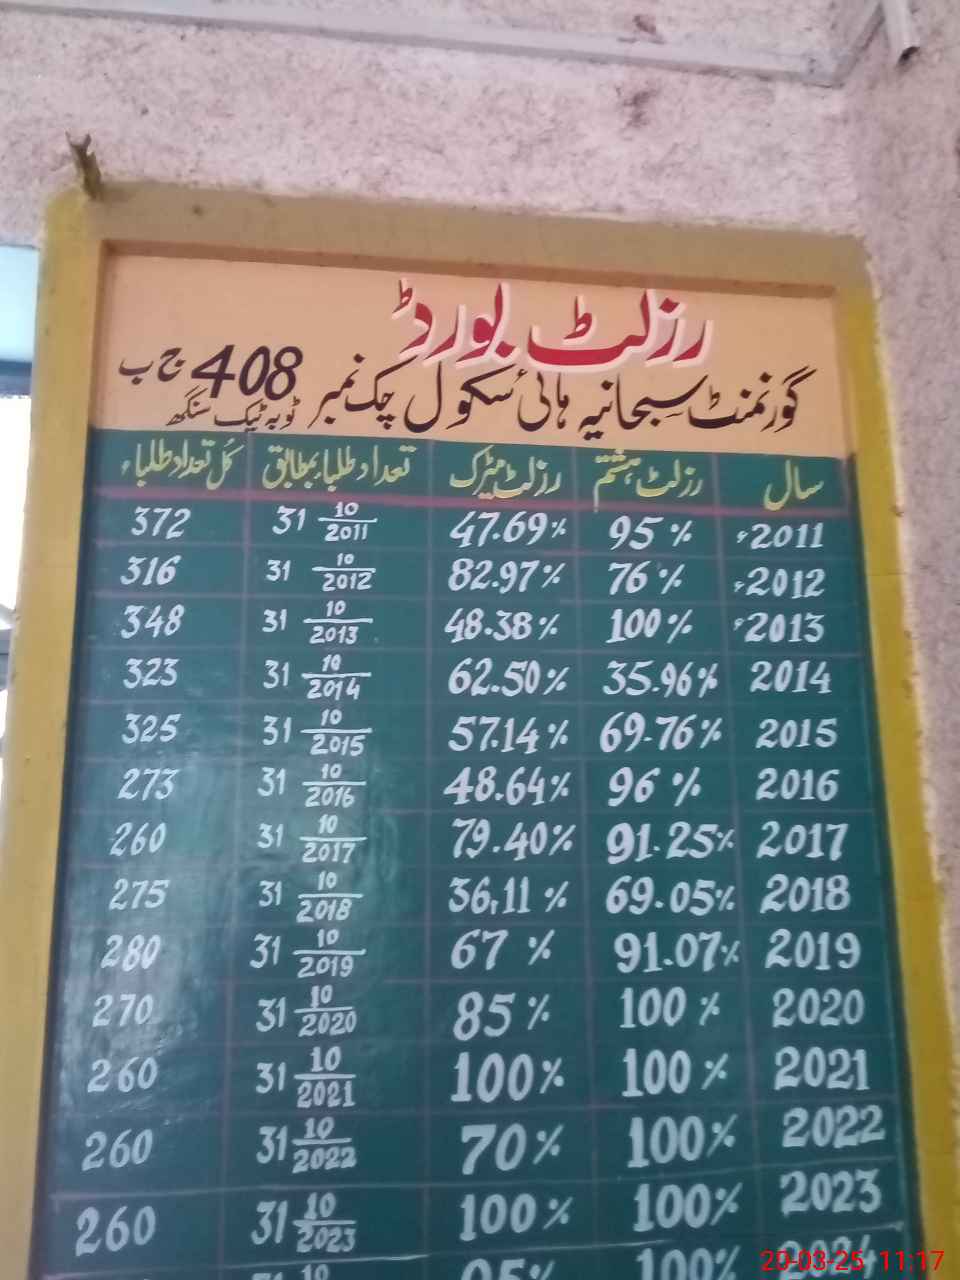 رزلٹ بورڈ
گورنمنٹ سبحانیہ ہائی سکول چک نمبر 408 ج ب
ٹوبہ ٹیک سنگھ
سال رزلٹ ہشتم رزلٹ میٹرک تعداد طلباء بمطابق کل تعداد طلباء
2011ء 95% 47.69% 31 10/2011 372
2012ء 76% 82.97% 31 10/2012 316
2013ء 100% 48.38% 31 10/2013 348
2014 35.96% 62.50% 31 10/2014 323
2015 69.76% 57.14% 31 10/2015 325
2016 96% 48.64% 31 10/2016 273
2017 91.25% 79.40% 31 10/2017 260
2018 69.05% 36.11% 31 10/2018 275
2019 91.07% 67% 31 10/2019 280
2020 100% 85% 31 10/2020 270
2021 100% 100% 31 10/2021 260
2022 100% 70% 31 10/2022 260
2023 100% 100% 31 10/2023 260
2024 100% 95% 31 10
20-03-25 11:17